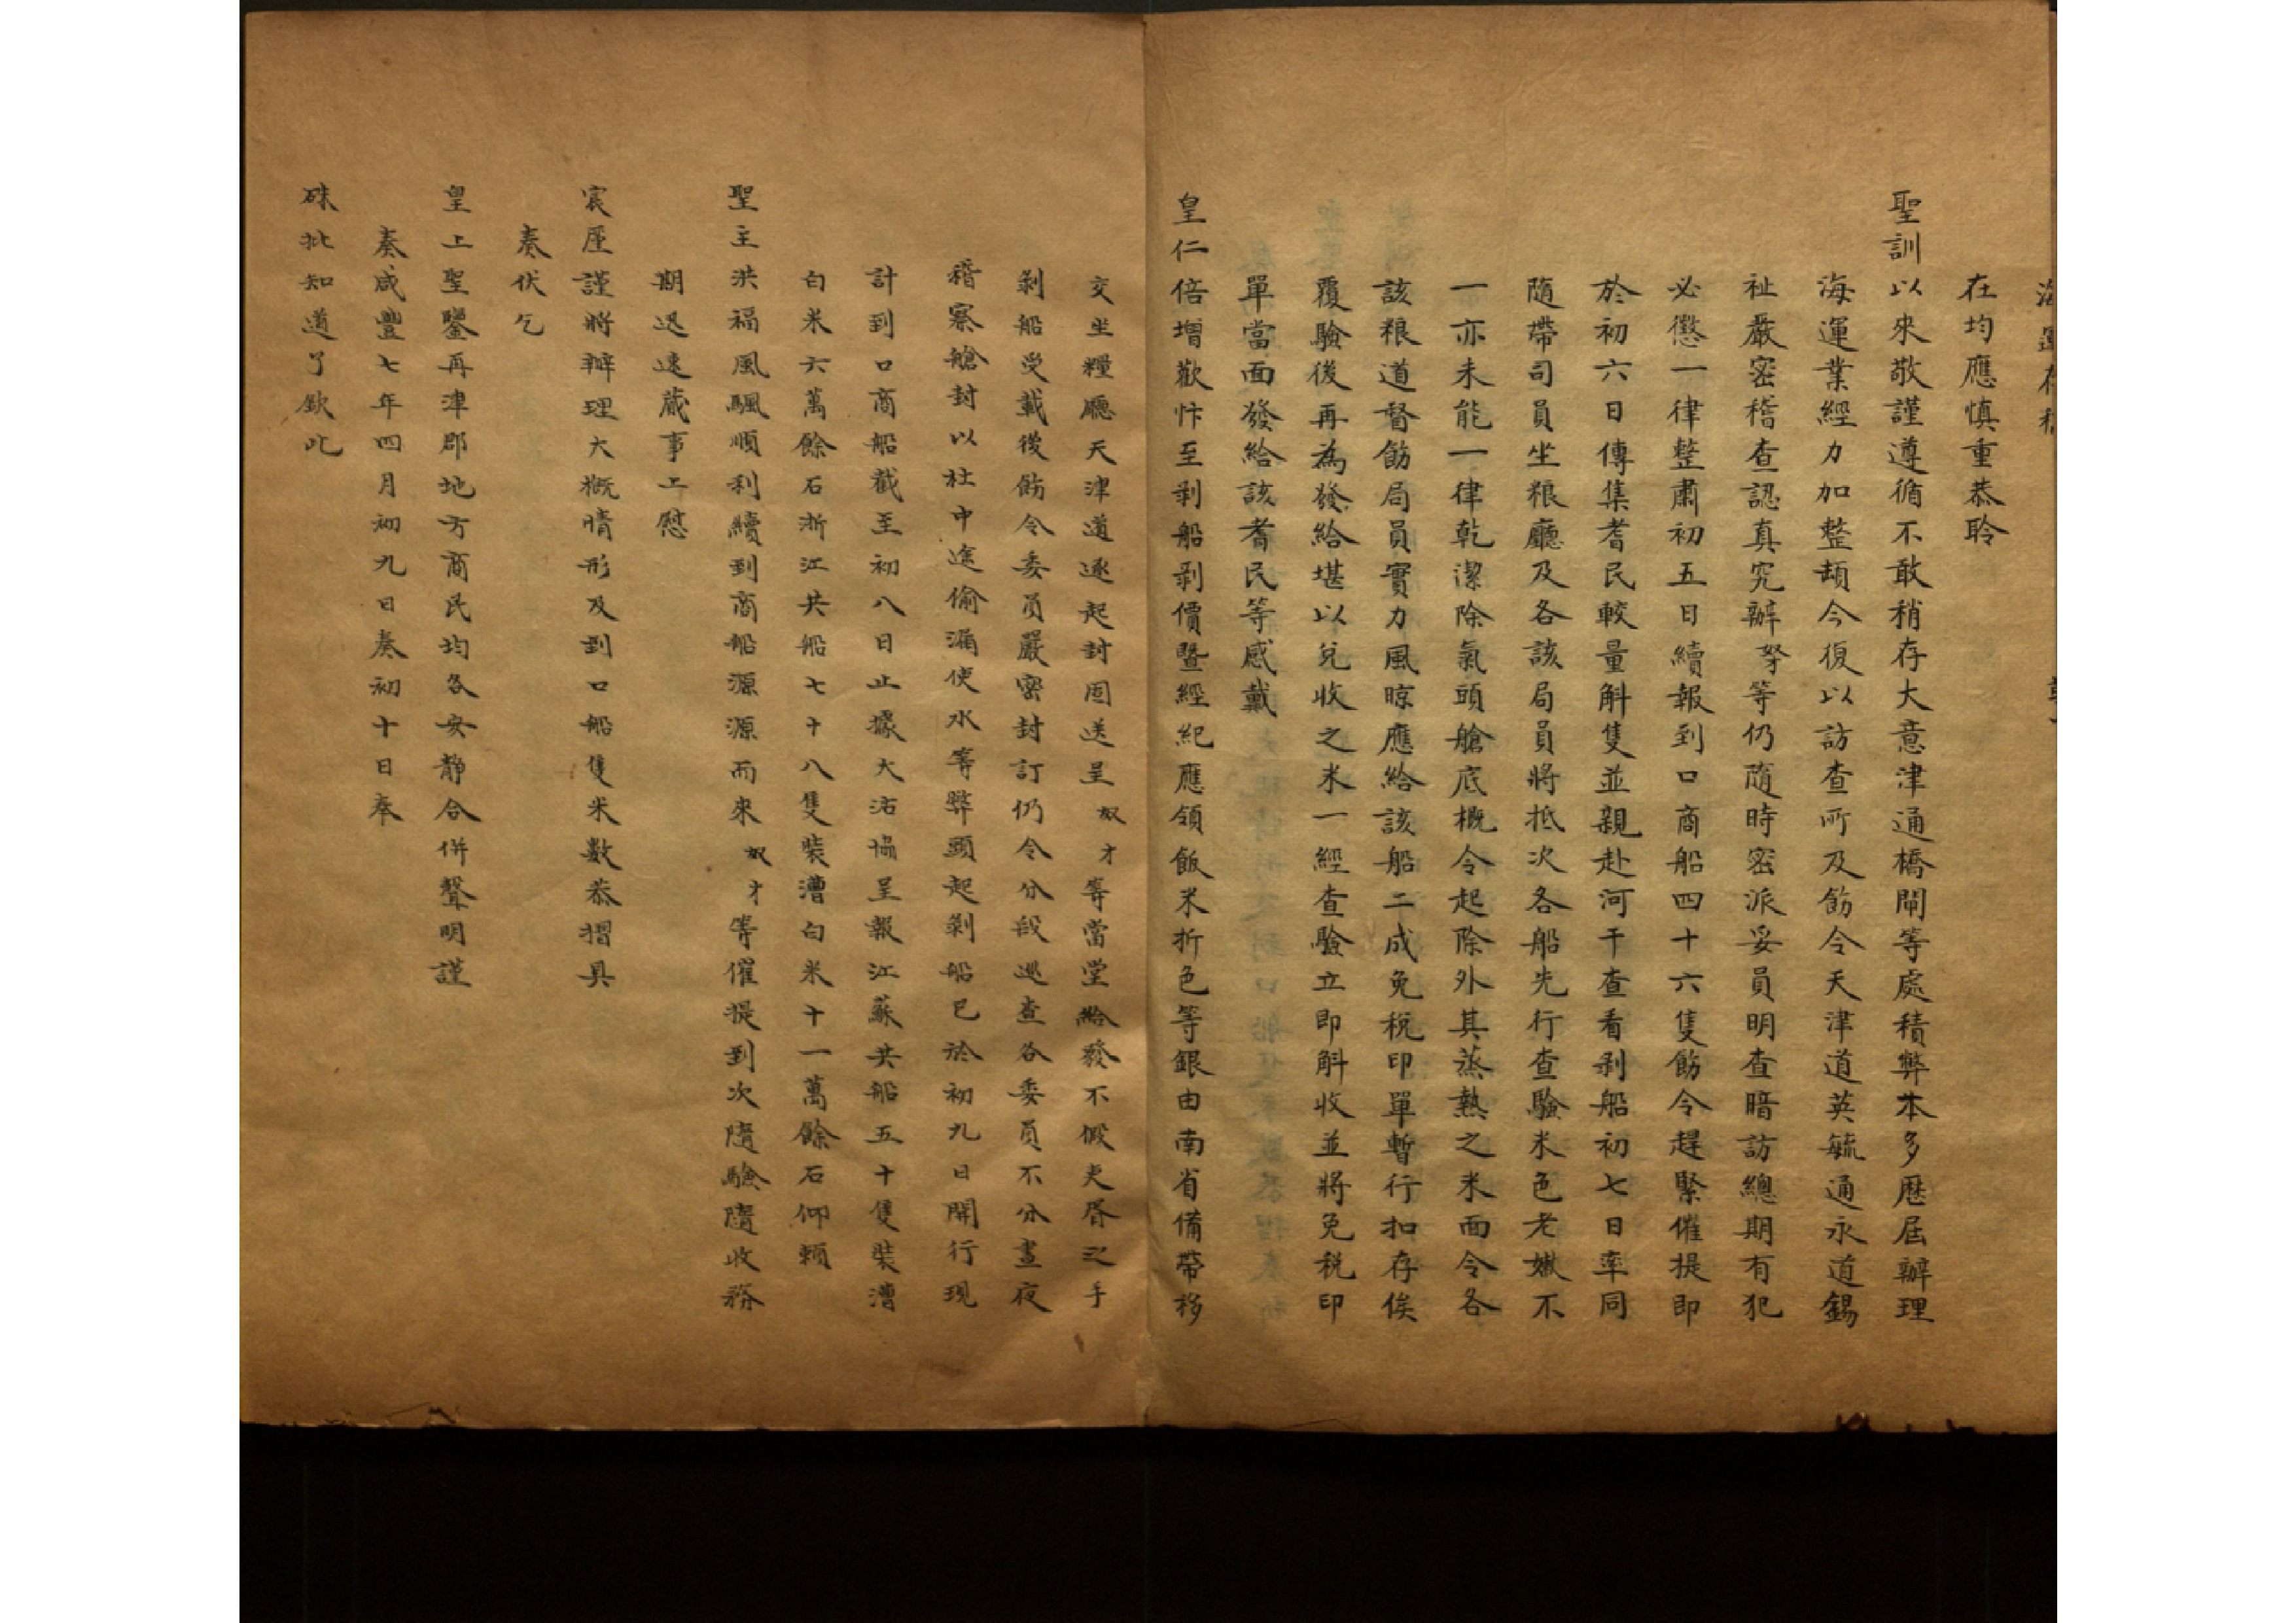 在均應慎重恭聆
聖訓以來敬謹遵循不敢稍存大意津通橋閘等處積弊本多歷屆辦理
海運業經力加整頓今復以訪查所及飭令天津道英毓通永道錫
祉嚴密稽查認真究辦等仍隨時密派妥員明查暗訪總期有犯
必懲一律整肅初五日續報到口商船四十六隻飭令趕緊催提即
於初六日傳集耆民較量斛隻並親赴河干查看剥船初七日率同
隨帶司員坐粮廳及各該局員將抵次各船先行查驗米色老嫩不
一亦未能一律乾潔除氣頭艙底概令起除外其蒸熱之米面令各
該粮道督飭局員實力風晾應給該船二成免税印單暫行扣存俟
覆驗後再為發給堪以兌收之米一經查驗立即斛收並將免税印
單當面發給該耆民等感戴
皇仁倍增歡忭至剥船剥價暨經紀應領飯米折色等銀由南省備帶移
交坐糧廳天津道逐起封固送呈奴才等當堂給發不假吏胥之手
剥船受載後飭令委員嚴密封訂仍令分段巡查各委員不分晝夜
稽察艙封以杜中途偷漏使水等弊頭起剥船已於初九日開行現
計到口商船截至初八日止據大沽協呈報江蘇共船五十隻裝漕
白米六萬餘石浙江共船七十八隻裝漕白米十一萬餘石仰賴
聖主洪福風颿順利續到商船源源而來奴才等催提到次隨驗隨收務
期迅速蕆事上慰
宸厪謹將辦理大概情形及到口船隻米數恭摺具
奏伏乞
皇上聖鑒再津郡地方商民均各安静合併聲明謹
奏咸豐七年四月初九日奏初十日奉
硃批知道了欽此